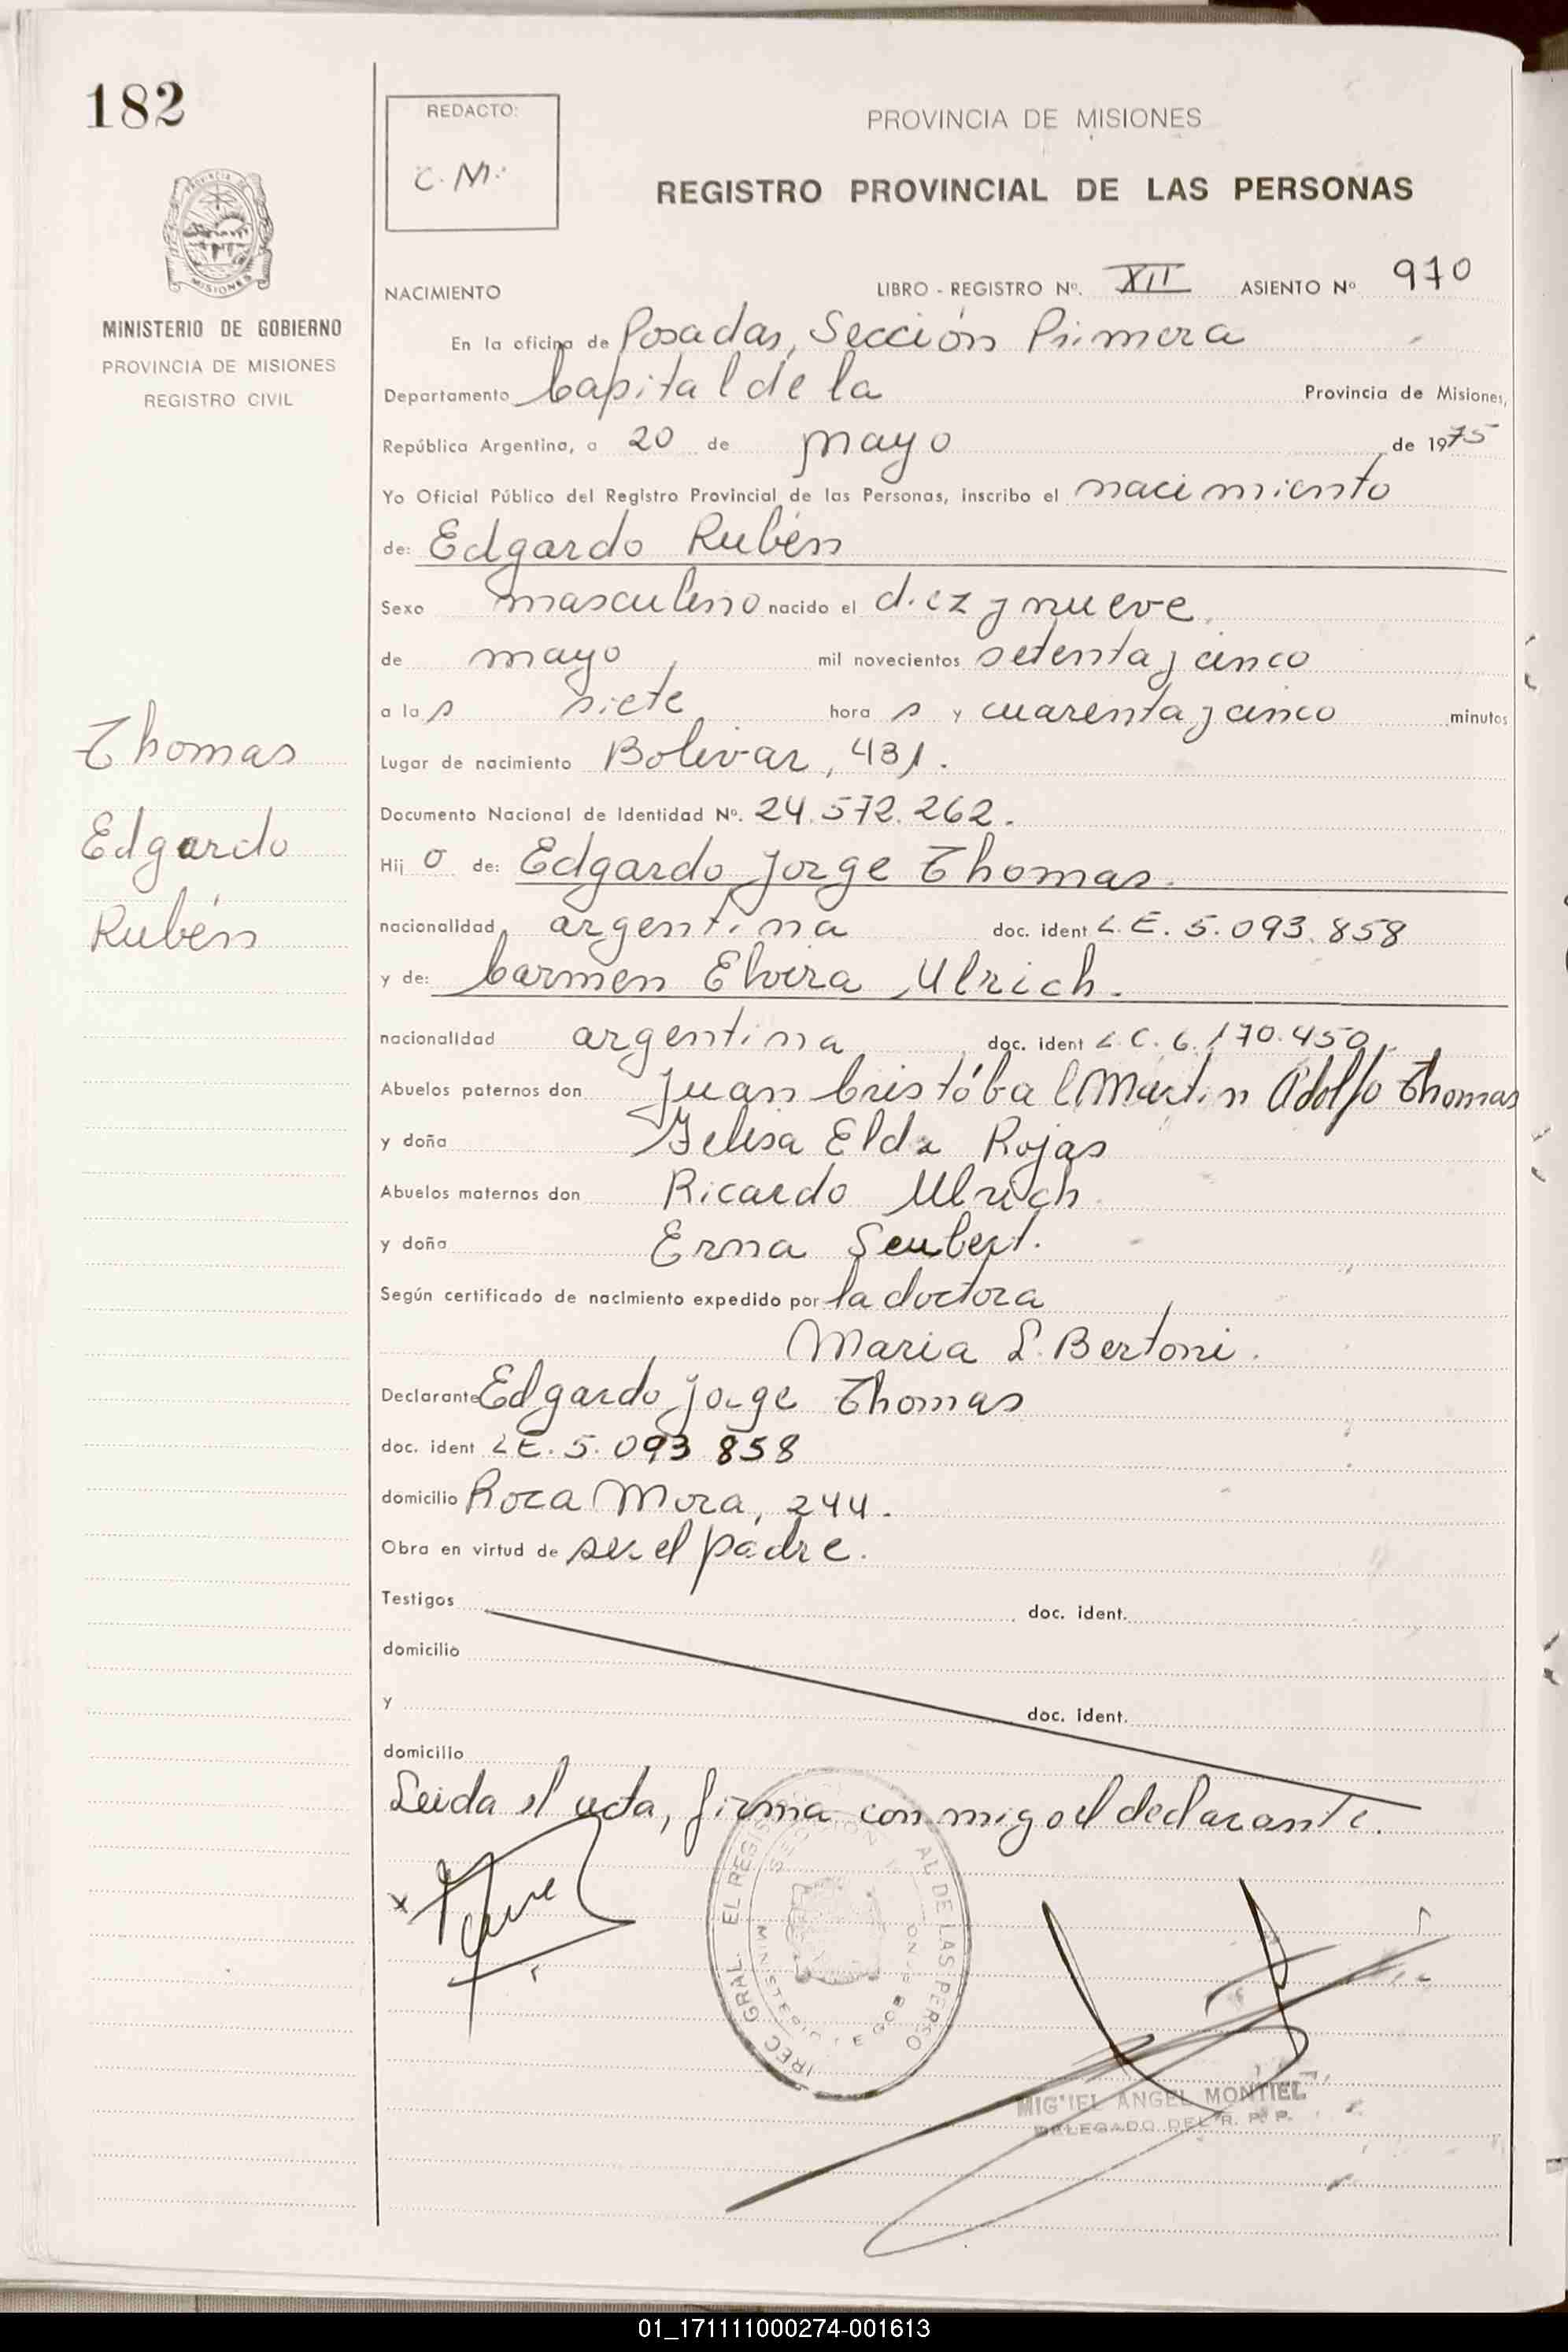 182
REDACTO:
C. M.
PROVINCIA DE MISIONES
REGISTRO PROVINCIAL DE LAS PERSONAS
MISIONES
MINISTERIO DE GOBIERNO
PROVINCIA DE MISIONES
REGISTRO CIVIL
NACIMIENTO LIBRO - REGISTRO Nº. XII ASIENTO Nº 970
En la oficina de Posadas, Sección Primera
Departamento Capital de la Provincia de Misiones,
República Argentina, a 20 de mayo de 1975
Yo Oficial Público del Registro Provincial de las Personas, inscribo el nacimiento
de: Edgardo Rubén
Sexo masculino nacido el diez y nueve
de mayo, mil novecientos setenta y cinco
a las siete horas y cuarenta y cinco minutos
Thomas
Edgardo
Rubén
Lugar de nacimiento Bolivar, 431.
Documento Nacional de Identidad Nº. 24.572.262.
Hijo de: Edgardo Jorge Thomas.
nacionalidad argentina doc. ident L.E. 5.093.858
y de: Carmen Elvira Ulrich.
nacionalidad argentina doc. ident L.C. 6.170.450.
Abuelos paternos don Juan Cristóbal Martin Adolfo Thomas
y doña Elda Rojas
Abuelos maternos don Ricardo Ulrich
y doña Erna Seubert.
Según certificado de nacimiento expedido por la doctora
Maria L. Bertoni.
Declarante Edgardo Jorge Thomas
doc. ident L.E. 5.093.858
domicilio Roca Mora, 244.
Obra en virtud de ser el padre.
Testigos doc. ident.
domicilio
y doc. ident.
domicilio
Leida el acta, firma conmigo el declarante.
MIGUEL ANGEL MONTIEL
DELEGADO DEL R. P. P.
01_171111000274-001613